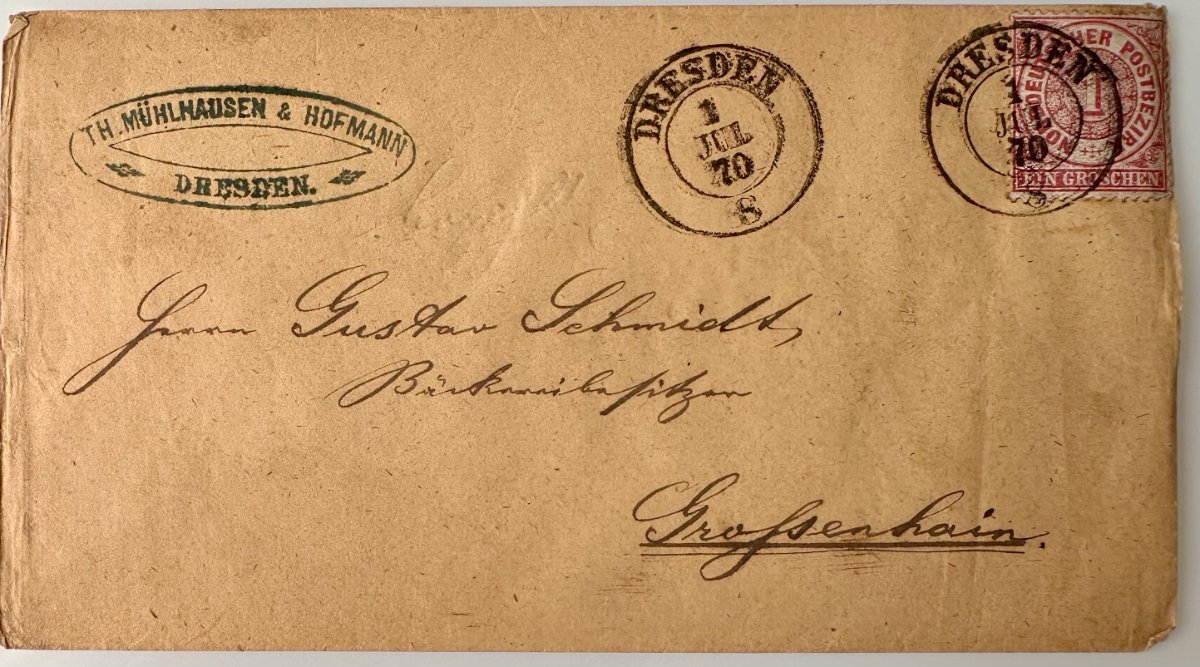 TH. MÜHLHAUSEN & HOFMANN
DRESDEN.
DRESDEN
1
JUL
70
8
DRESDEN
1
JUL
70
NORDDEUTSCHER POSTBEZIRK
1
EIN GROSCHEN
Herrn Gustav Schmidt,
Bäckereibesitzer
Grossenhain.